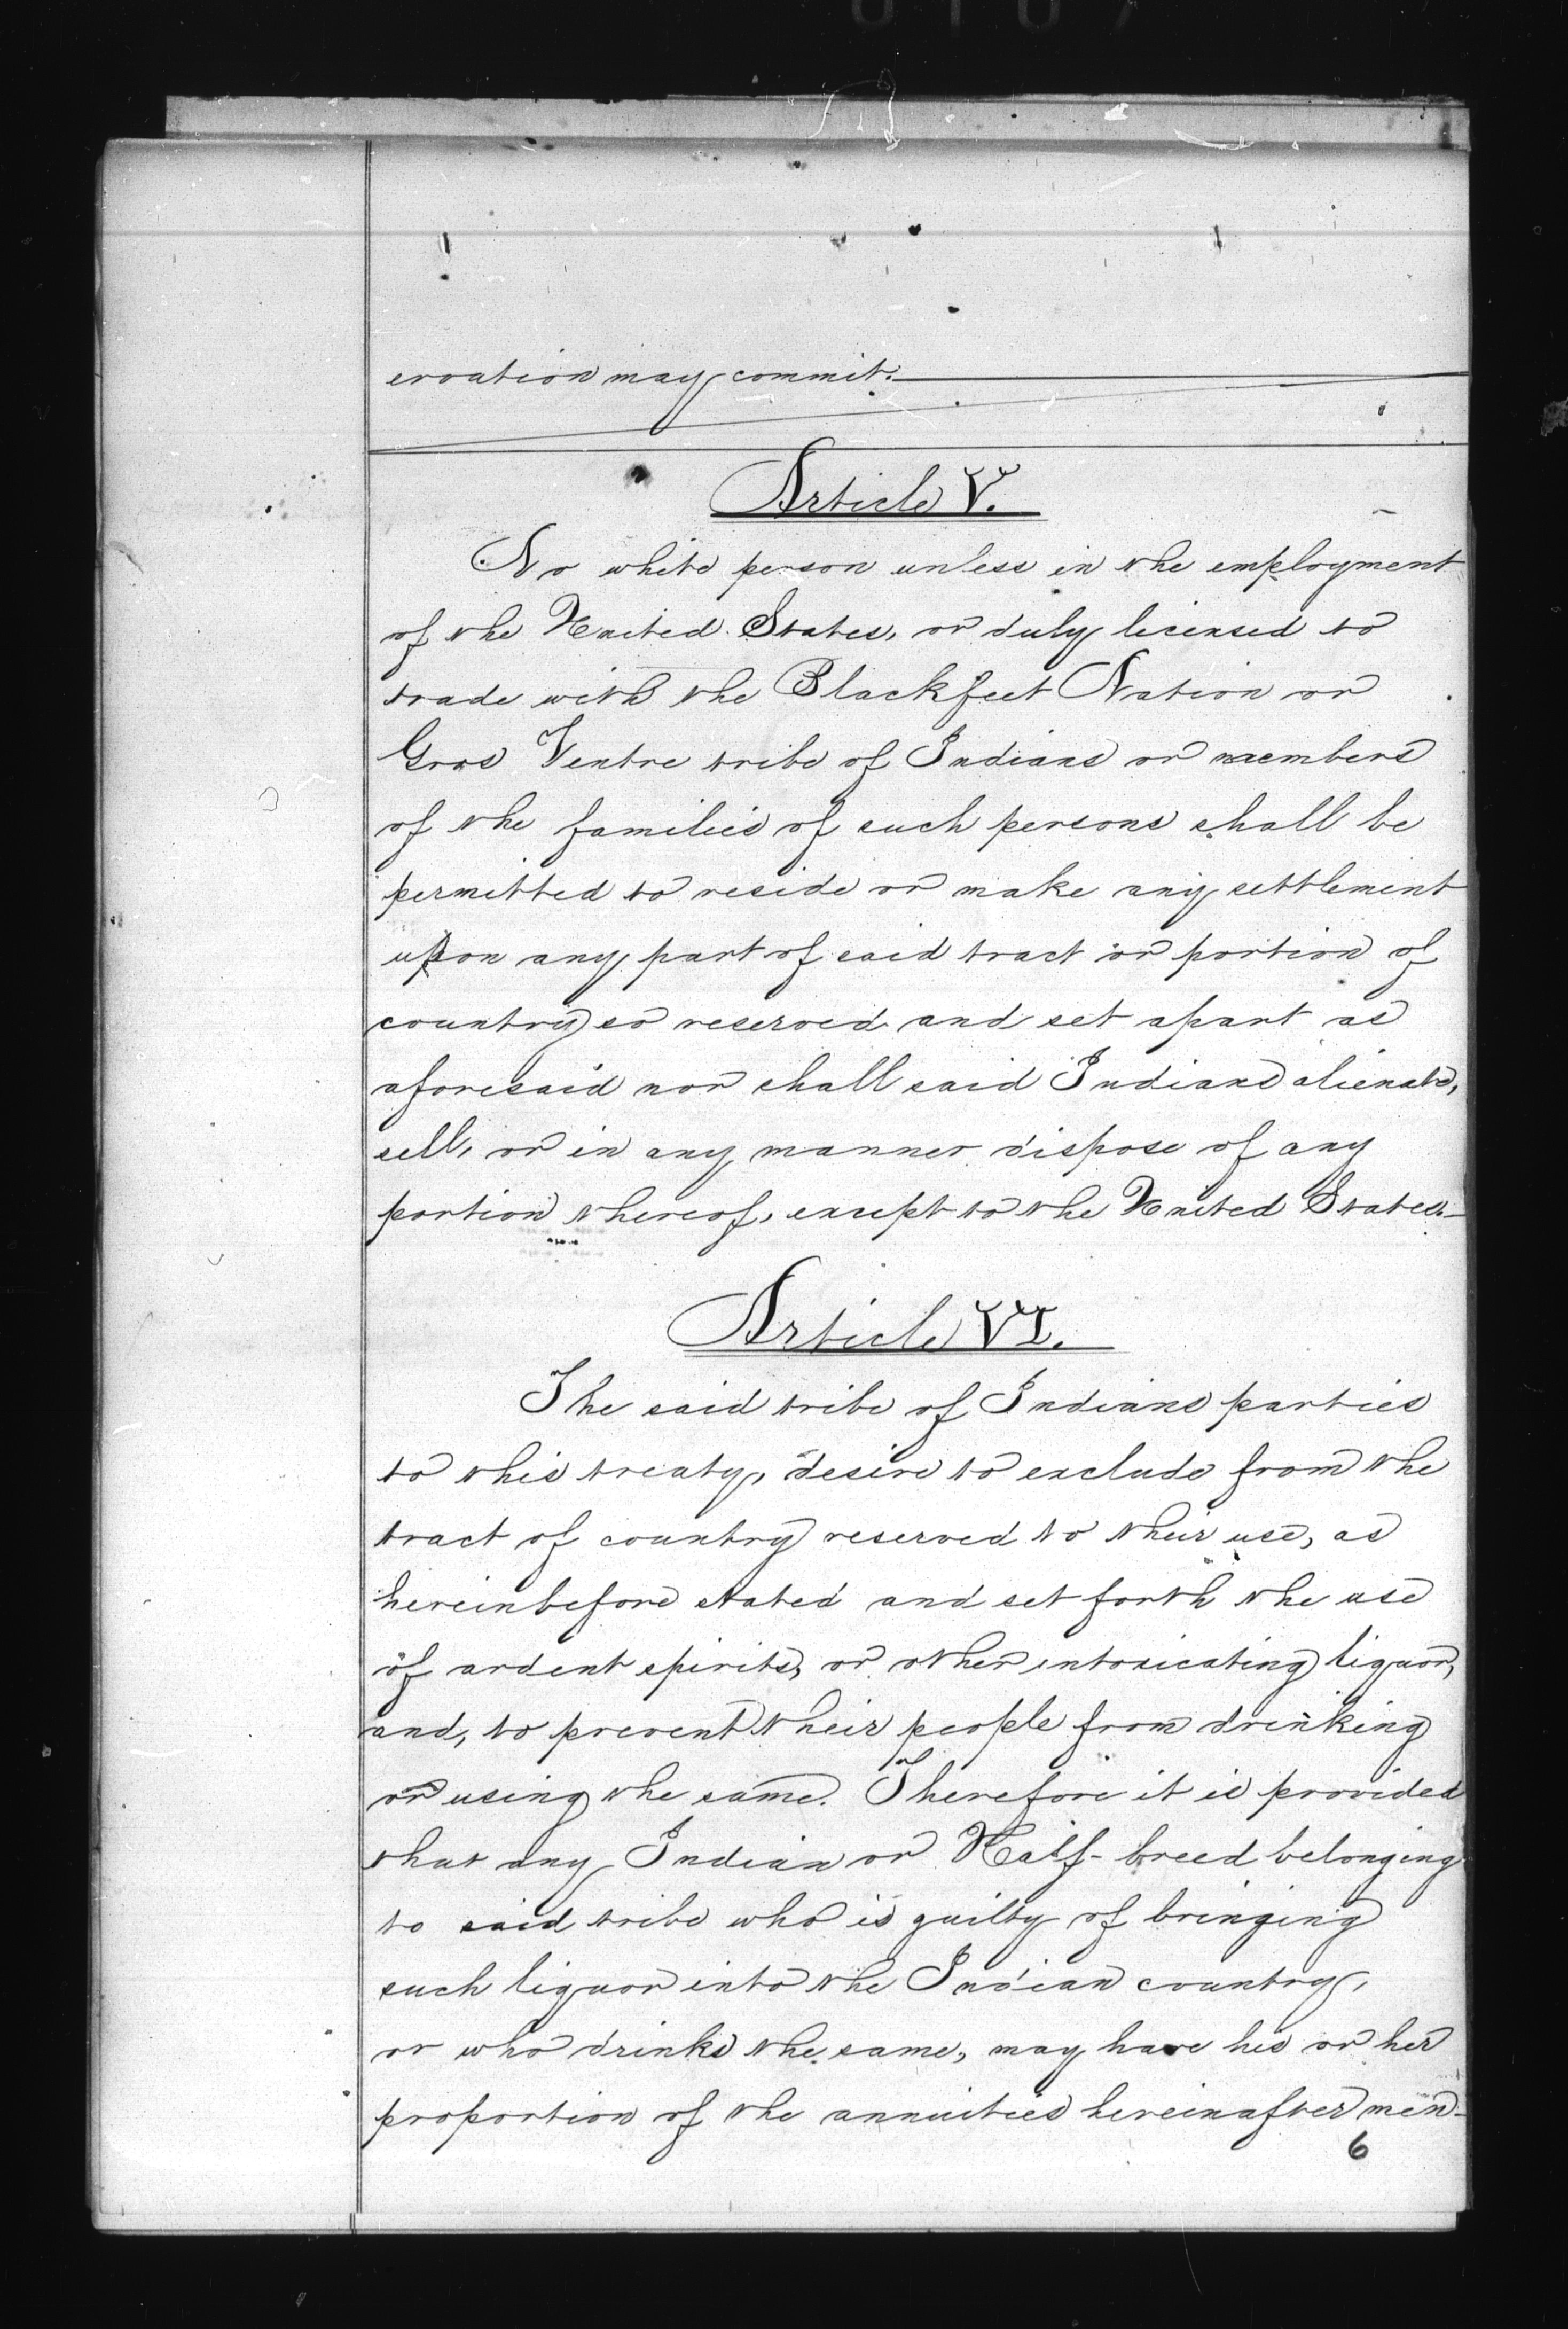 ervation may commit.
Article V.
No white person unless in the employment
of the United States, or duly licensed to
trade with the Blackfeet Nation or
Gros Ventre tribe of Indians or members
of the families of such persons shall be
permitted to reside or make any settlement
upon any part of said tract or portion of
country so reserved and set apart as
aforesaid nor shall said Indians alienate,
sell, or in any manner dispose of any
portion thereof, except to the United States.
Article VI.
The said tribe of Indians parties
to this treaty, desire to exclude from the
tract of country reserved to their use, as
hereinbefore stated and set forth the use
of ardent spirits, or other intoxicating liquor,
and, to prevent their people from drinking
or using the same. Therefore it is provided
that any Indian or Half-breed belonging
to said tribe who is guilty of bringing
such liquor into the Indian country,
or who drinks the same, may have his or her
proportion of the annuities hereinafter men-
6